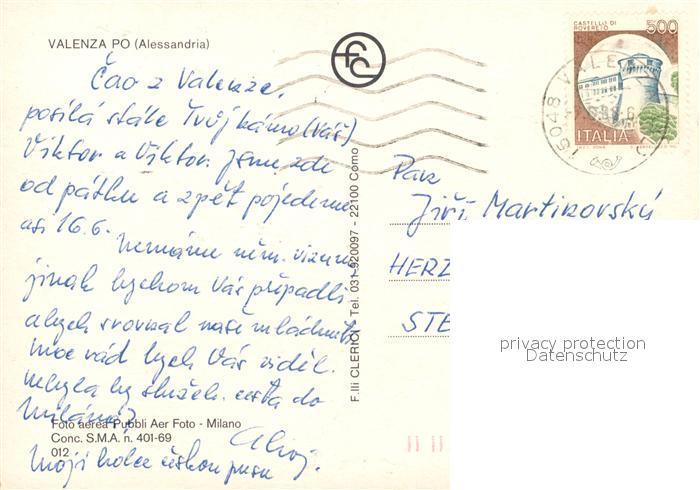 VALENZA PO (Alessandria)
Čao z Valenze,
posílá stále Tvůj kámo (Váš)
Viktor a Viktor. Jsme zde
od pátku a zpět pojedeme
asi 16.6.
Nemáme něm. vízum
jinak bychom Vás přepadli
abych srovnal naše mládnutí,
moc rád bych Vás viděl.
nebyla by služeb. cesta do
Milána?
Ahoj.
Moji holce českou pusu
Foto aerea Pubbli Aer Foto - Milano
Conc. S.M.A. n. 401-69
012
F.lli CLERICI - Tel. 031-920097 - 22100 Como
fc
CASTELLO DI
ROVERETO
500
ITALIA
15048 VALE
Pan
Jiří Martinovský
HERZ
STE
privacy protection
Datenschutz